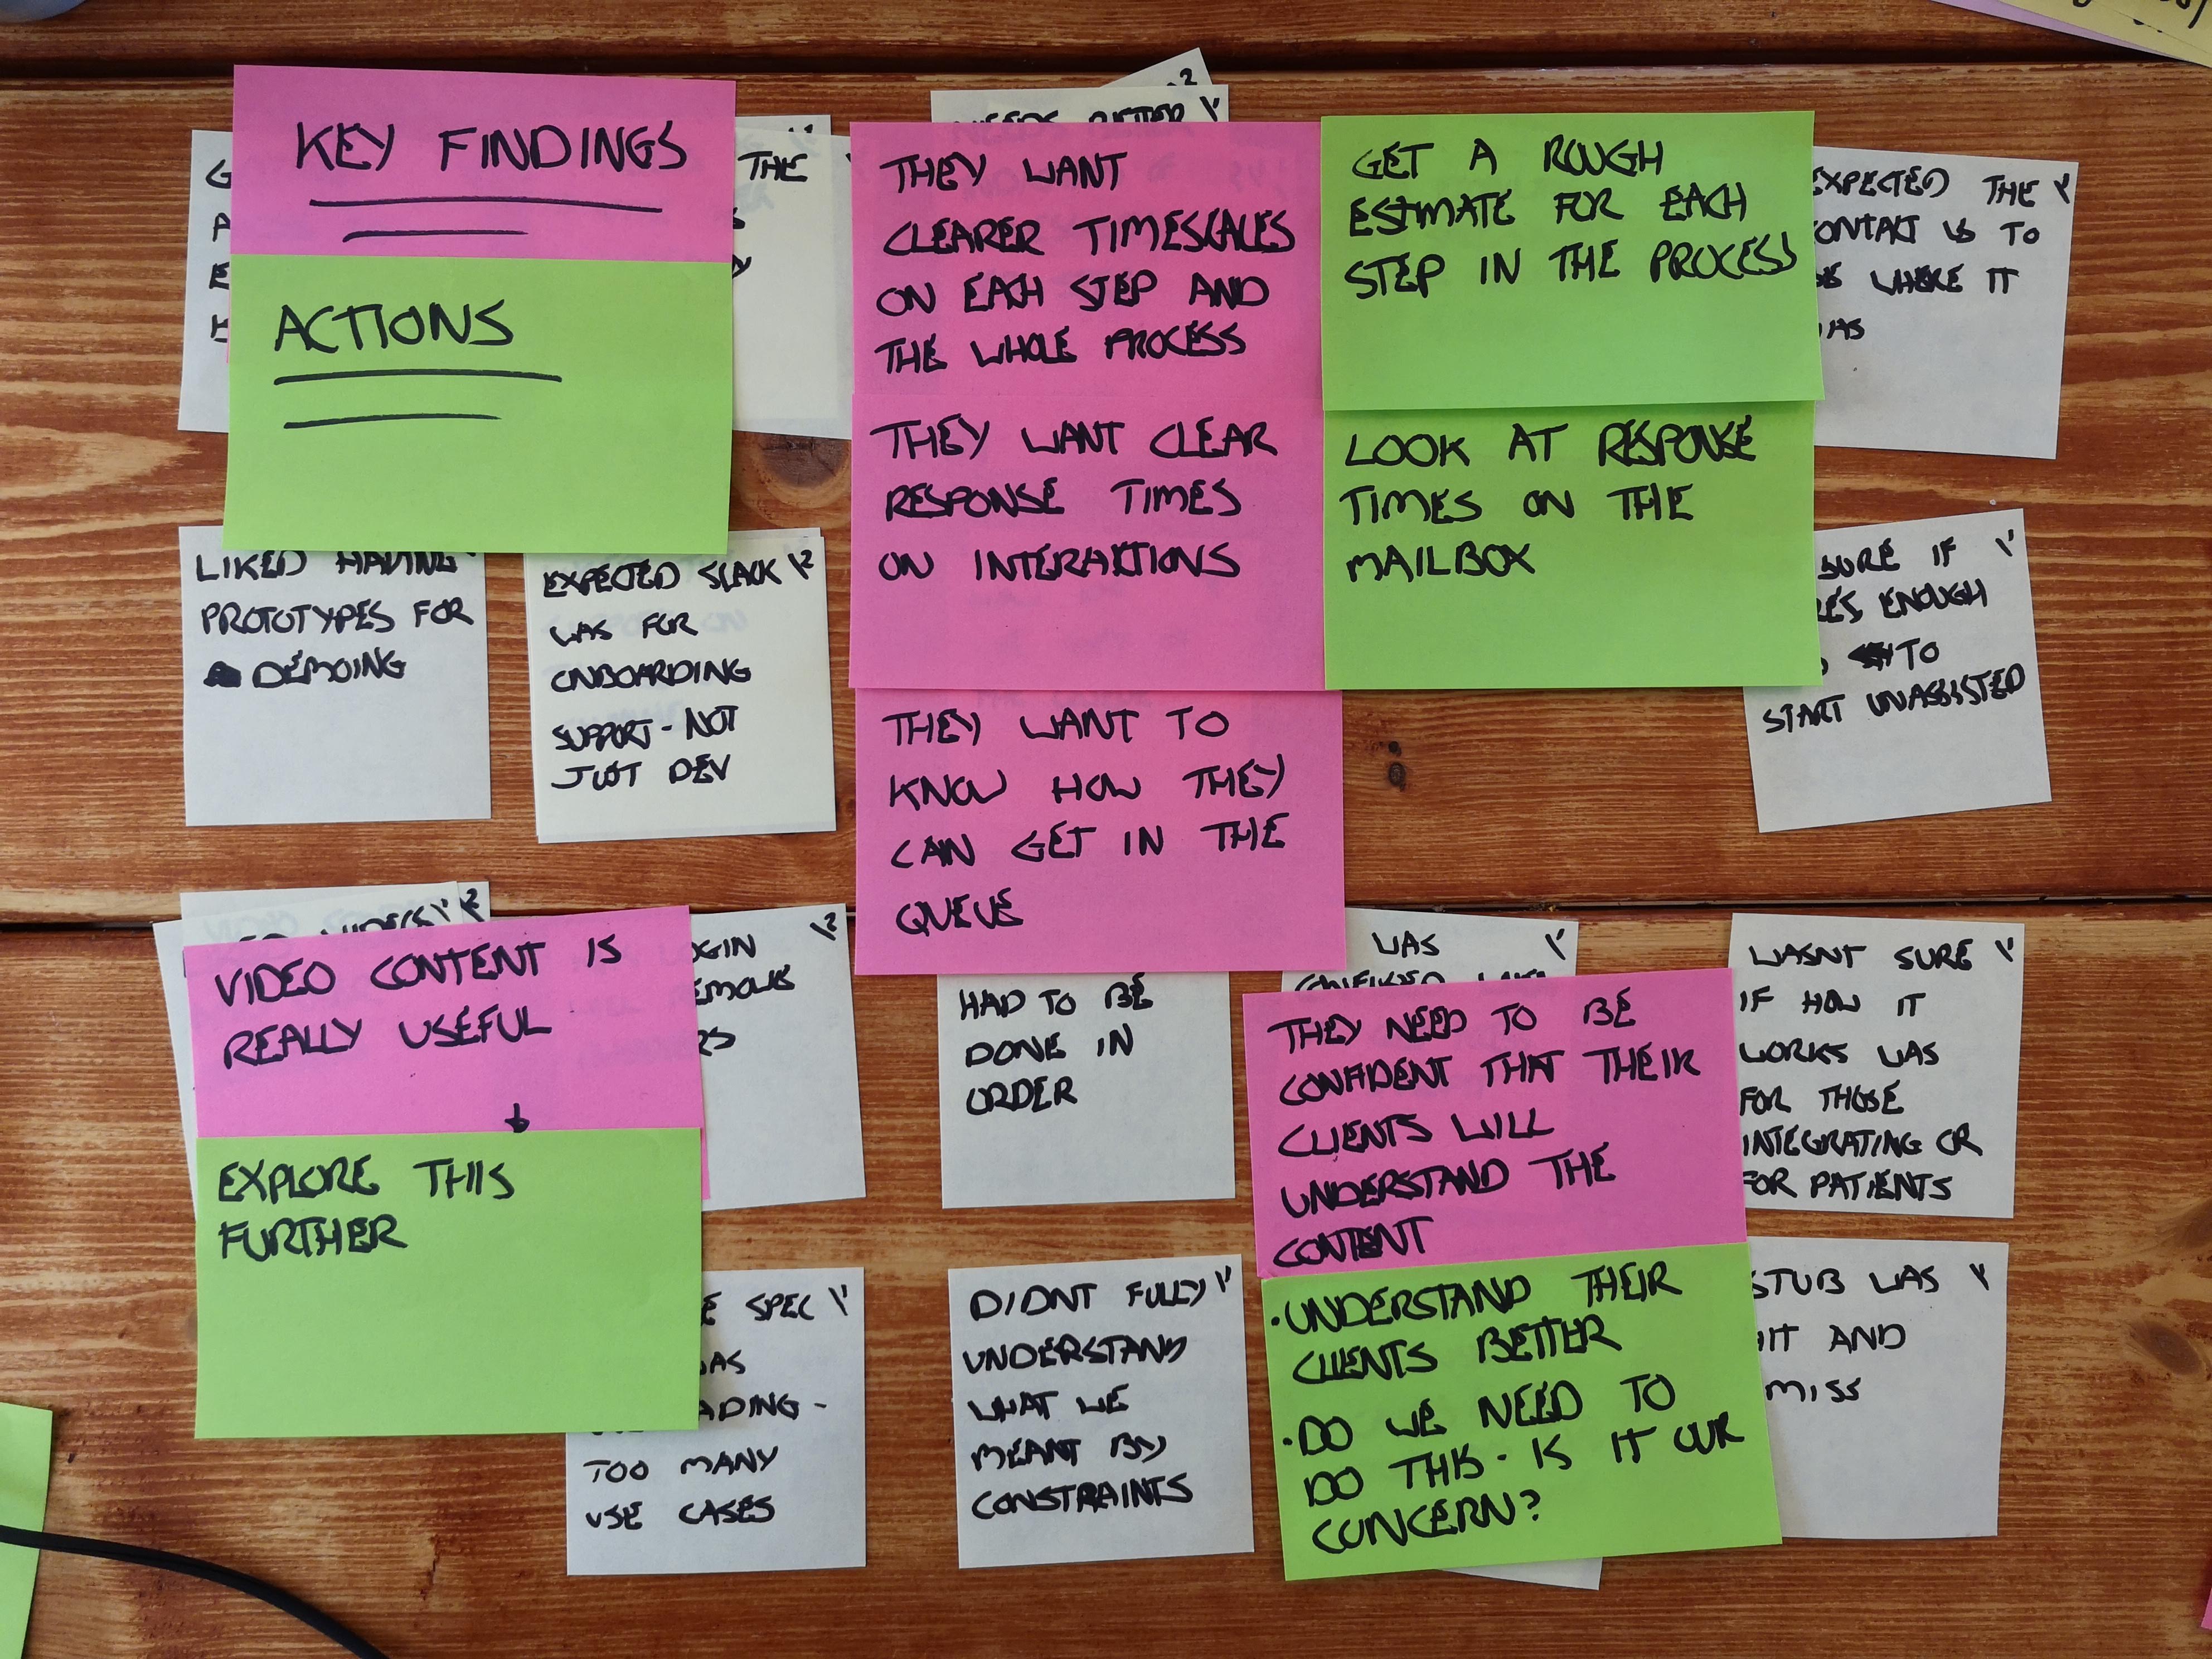 KEY FINDINGS
ACTIONS
THE
NEEDS BETTER
THEY WANT
CLEARER TIMESCALES
ON EACH STEP AND
THE WHOLE PROCESS
GET A ROUGH
ESTIMATE FOR EACH
STEP IN THE PROCESS
EXPECTED THE
CONTACT US TO
BE WHERE IT
WAS
THEY WANT CLEAR
RESPONSE TIMES
ON INTERACTIONS
LOOK AT RESPONSE
TIMES ON THE
MAILBOX
LIKED HAVING
PROTOTYPES FOR
DEMOING
EXPECTED SLACK
WAS FOR
ONBOARDING
SUPPORT - NOT
JUST DEV
SURE IF
ENOUGH
TO
START UNASSISTED
THEY WANT TO
KNOW HOW THEY
CAN GET IN THE
QUEUE
VIDEO CONTENT IS
REALLY USEFUL
EXPLORE THIS
FURTHER
HAD TO BE
DONE IN
ORDER
WAS
THEY NEED TO BE
CONFIDENT THAT THEIR
CLIENTS WILL
UNDERSTAND THE
CONTENT
WASNT SURE
IF HOW IT
WORKS WAS
FOR THOSE
INTEGRATING OR
FOR PATIENTS
SPEC
TOO MANY
USE CASES
DIDNT FULLY
UNDERSTAND
WHAT WE
MEANT BY
CONSTRAINTS
• UNDERSTAND THEIR
CLIENTS BETTER
• DO WE NEED TO
DO THIS - IS IT OUR
CONCERN?
STUB WAS
HIT AND
MISS